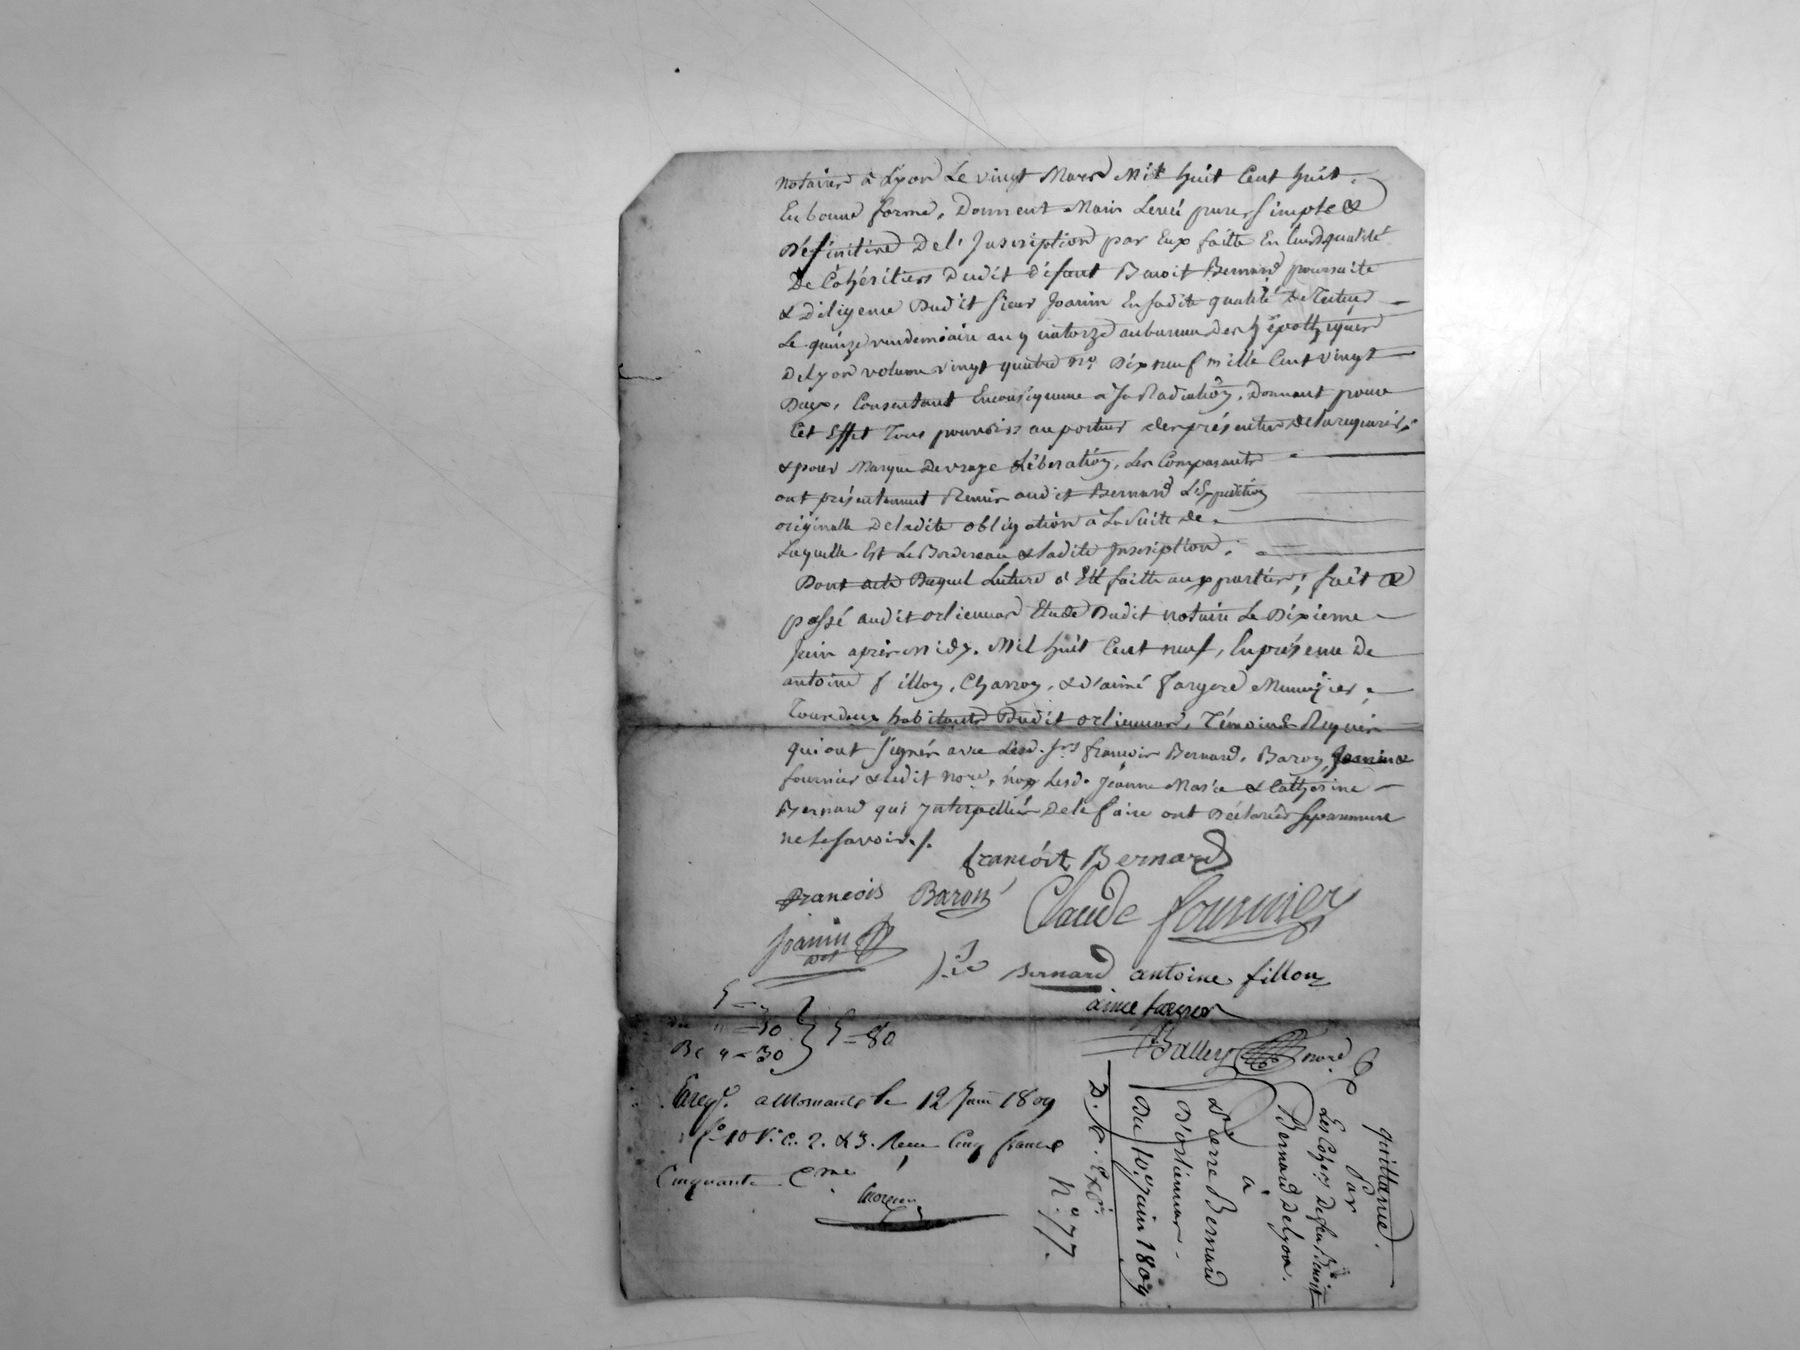 notaires à Lyon Le vingt Mars Mil huit Cent huit,
En bonne forme, Donnent Main Levée pure, simple &
Définitive De l'Inscription par Eux faitte En leurs qualité
De Cohéritiers Dudit défunt Benoit Bernard poursuite
& Diligence Dudit Sieur Joanin En sadite qualité de Tuteur
Le quinze vendemiaire an quatorze au bureau des hÿpothèques
De Lyon volume vingt quatre no. Dix neuf mille Cent vingt
Deux, Consentant En conséquence à Sa Radiation, Donnant pour
Cet Effet Tous pouvoirs au porteur des présentes de la requérir,
& pour Marque De vraye Libération, Les Comparants
ont présentement Remis audit Bernard L'Expédition
originalle De ladite obligation à La Suite de
Laquelle Est Le Bordereau & ladite Inscription.
Dont acte Duquel Lecture à Eté faitte aux parties; fait &
passé audit orliennas Etude Dudit notaire Le Dixieme
Juin après midy. Mil huit Cent neuf, En présence De
antoine fillon, Charron, & d'aimé fargere Menuzier,
Tous deux habitants Dudit orliennas, Témoins Requis
qui ont signés avec Lesd. srs françois Bernard, Baron, Joanin &
fournier & ledit nore, non Lesd. Jeanne Marie & Catherine
Bernard qui Interpellées De le faire ont Déclarées séparément
ne Le savoir./.
francóit Bernard
françois Baron
Claude fournier
Joanin
Bernard antoine fillon
aimé farger
Balley nore
50
30
5 = 80
Enregt. a Mornant le 12 Juin 1809
fo. 10 Vo. C. 2. & 3. Recu Cinq francs
Cinquante Cmes
quittance
Par
Les Cohers. De feu Benoit
Bernard De Lyon.
à
Pierre Bernard
D'orliennas.
Du 10. Juin 1809
No. 77.